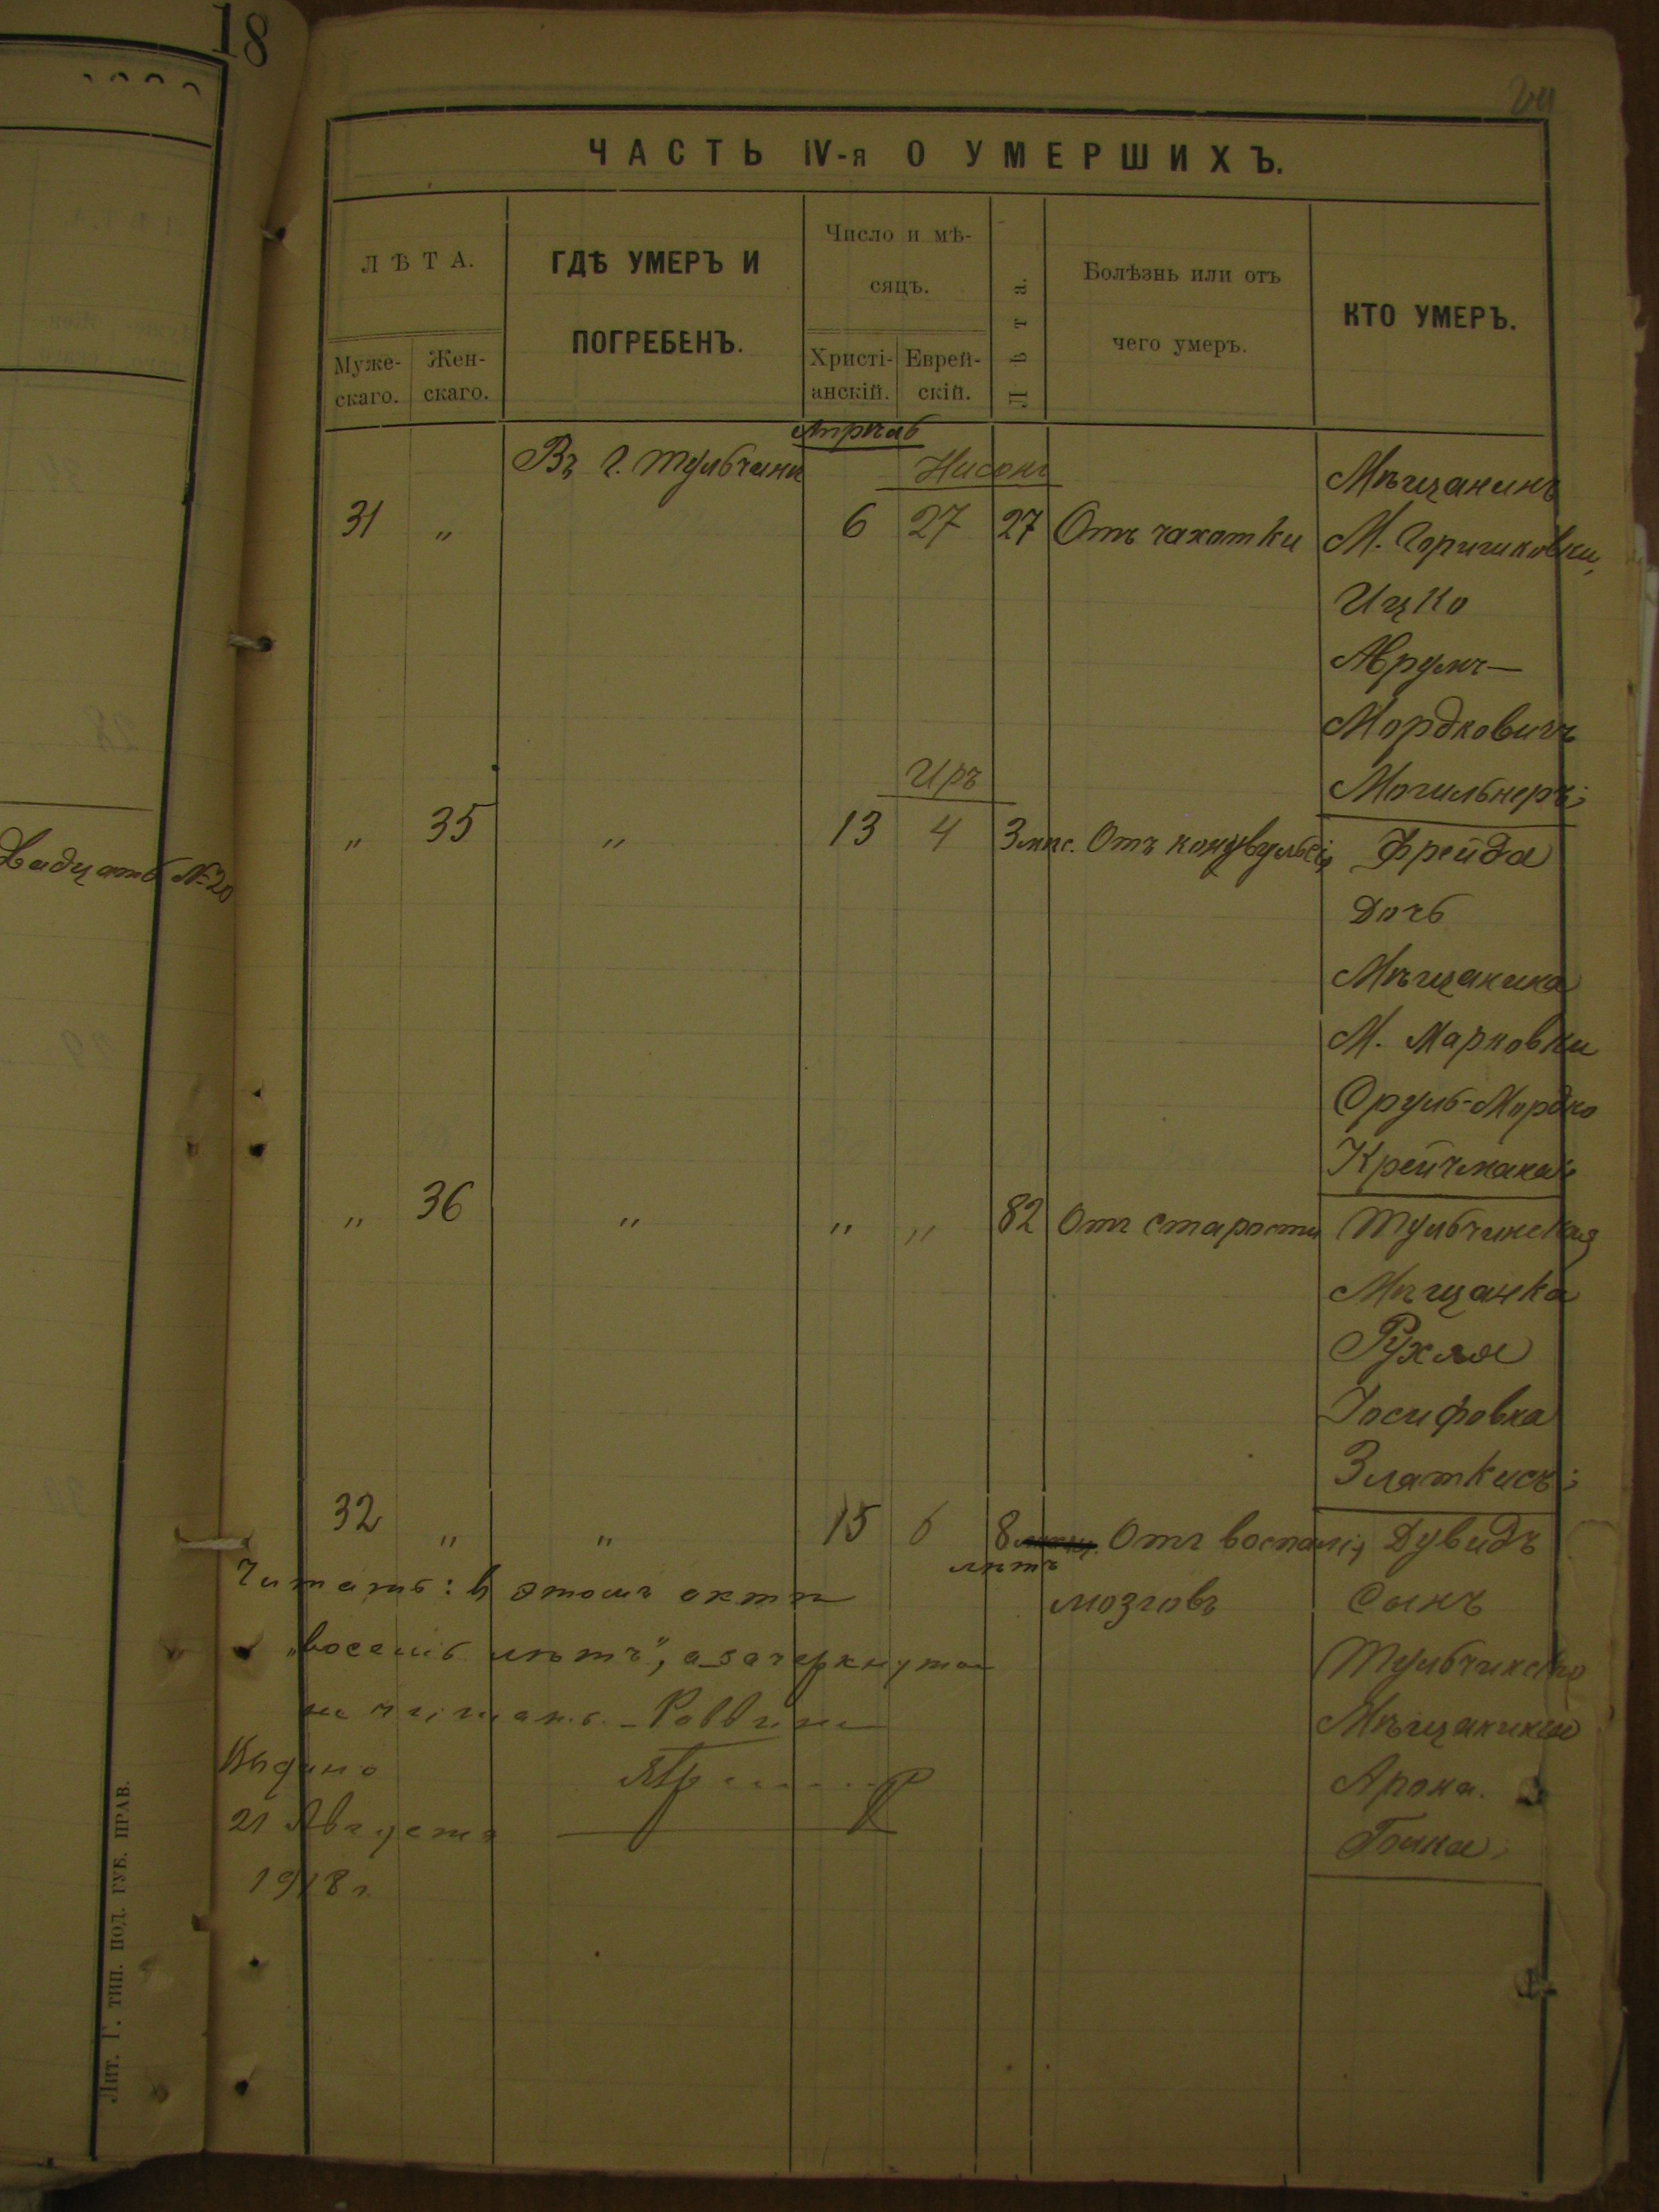 18
ЧАСТЬ IV-я О УМЕРШИХЪ.
ЛѢТА.
Муже-
скаго.
Жен-
скаго.
ГДѢ УМЕРЪ И
ПОГРЕБЕНЪ.
Число и мѣ-
сяцъ.
Христі-
анскій.
Еврей-
скій.
Лѣта.
Болѣзнь или отъ
чего умеръ.
КТО УМЕРЪ.
Апрѣль
Въ г. Тульчинѣ Нисонъ Мѣщанинъ
31 " 6 27 27 Отъ чахотки М. Горишковки,
Ицко
Аврумъ—
Мордковичъ
Иръ
Могильнеръ;
" 35 " 13 4 3 мѣс. Отъ конвульсіи Фрейда
Дочь
Мѣщанина
М. Марковки
Сруль-Мордко
Крейчмана;
" 36 " " " 82 Отъ старости Тульчинская
Мѣщанка
Рухля
Іосифовна
Златкисъ;
32 " " 15 6 8 Отъ воспал; Дувидъ
лѣтъ
мозговъ Сынъ
Тульчинско
Мѣщанина
Арона
Читать: въ этомъ актѣ
"восемь лѣтъ", а зачеркнутое
не читать. Раввинъ
Выдано
21 Августа
1918 г.
Двадцать №20
Лит. Г. тип. под. губ. прав.